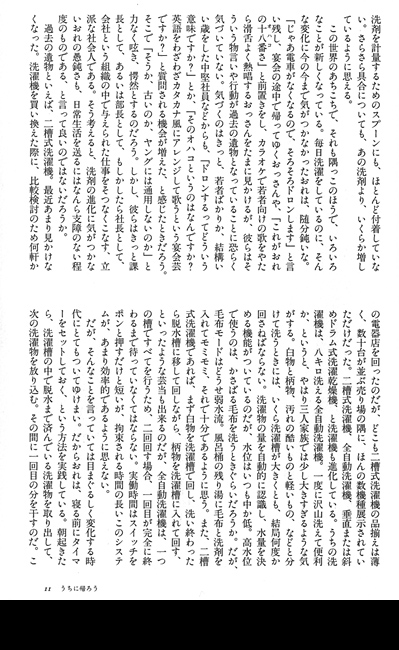 洗剤を計量するためのスプーンにも、ほとんど付着していな
い。さらさら具合についても、あの洗剤より、いくらか増し
ているように思える。
　この世界のあちこちで、それも隅っこのほうで、いろいろ
なことが新しくなっている。毎日洗濯をしているのに、そん
な変化に今の今まで気がつかなかったおれは、随分鈍いな。
「じゃあ電車がなくなるので、そろそろドロンします」と言
い残し、宴会の途中で帰ってゆくおっさんや、「これがおれ
の十八番さ」と前置きをし、カラオケで若者向けの歌をやた
ら滑舌よく熱唱するおっさんをたまに見かけるが、彼らはそ
ういう物言いや行動が過去の遺物となっていることに恐らく
気づいていない。気づくのはきっと、若者ばかりか、結構い
い歳をした中堅社員などからも、「ドロンするってどういう
意味ですか？」とか、「そのオハコというのはなんですか？
英語をわざわざカタカナ風にアレンジして歌うという宴会芸
ですか？」と質問される機会が増えた、と感じたときだろう。
そこで「そうか、古いのか、ヤングには通用しないのか」と
力なく呟き、愕然とするのだろう。しかし、彼らはきっと課
長として、あるいは部長として、もしかしたら社長として、
会社という組織の中で与えられた仕事をそつなくこなす、立
派な社会人である。そう考えると、洗剤の進化に気がつかな
いおれの愚鈍さも、日常生活を送るにはなんら支障のない程
度のものである、と言って良いのではないだろうか。
　過去の遺物といえば、二槽式洗濯機。最近あまり見かけな
くなった。洗濯機を買い換えた際に、比較検討のため何軒か
の電器店を回ったのだが、どこも二槽式洗濯機の品揃えは薄
く、数十台が並ぶ売り場の隅に、ほんの数機種展示されてい
ただけだった。二槽式洗濯機、全自動洗濯機、垂直または斜
めドラム式洗濯乾燥機、と洗濯機も進化している。うちの洗
濯機は、八キロ洗える全自動洗濯機。一度に沢山洗えて便利
か、というと、やはり三人家族では少し大きすぎるような気
がする。白物と柄物、汚れの酷いものと軽いもの、などと分
けて洗うときには、いくら洗濯槽が大きくとも、結局何度か
回さねばならない。洗濯物の量を自動的に認識し、水量を決
める機能がついているのだが、水位はいつも中か低。高水位
で使うのは、かさばる毛布を洗うときぐらいだろうか。だが、
毛布モードはどうせ弱水流。風呂桶の残り湯に毛布と洗剤を
入れてモミモミ、それで十分であるように思う。また、二槽
式洗濯機であれば、まず白物を洗濯槽で回し、洗い終わった
ら脱水槽に移して回しながら、柄物を洗濯槽に入れて回す、
といったような芸当も出来るのだが、全自動洗濯機は、一つ
の槽ですべてを行うため、二回回す場合、一回目が完全に終
わるまで待っていなくてはならない。実動時間はスイッチを
ポンと押すだけと短いが、拘束される時間の長いこのシステ
ムが、あまり効率的であるように思えない。
　だが、そんなことを言っていては目まぐるしく変化する時
代にとてもついてゆけまい。だからおれは、寝る前にタイマ
ーをセットしておく、という方法を実践している。朝起きた
ら、洗濯槽の中で脱水まで済んでいる洗濯物を取り出して、
次の洗濯物を放り込む。その間に一回目の分を干すのだ。こ
11　うちに帰ろう